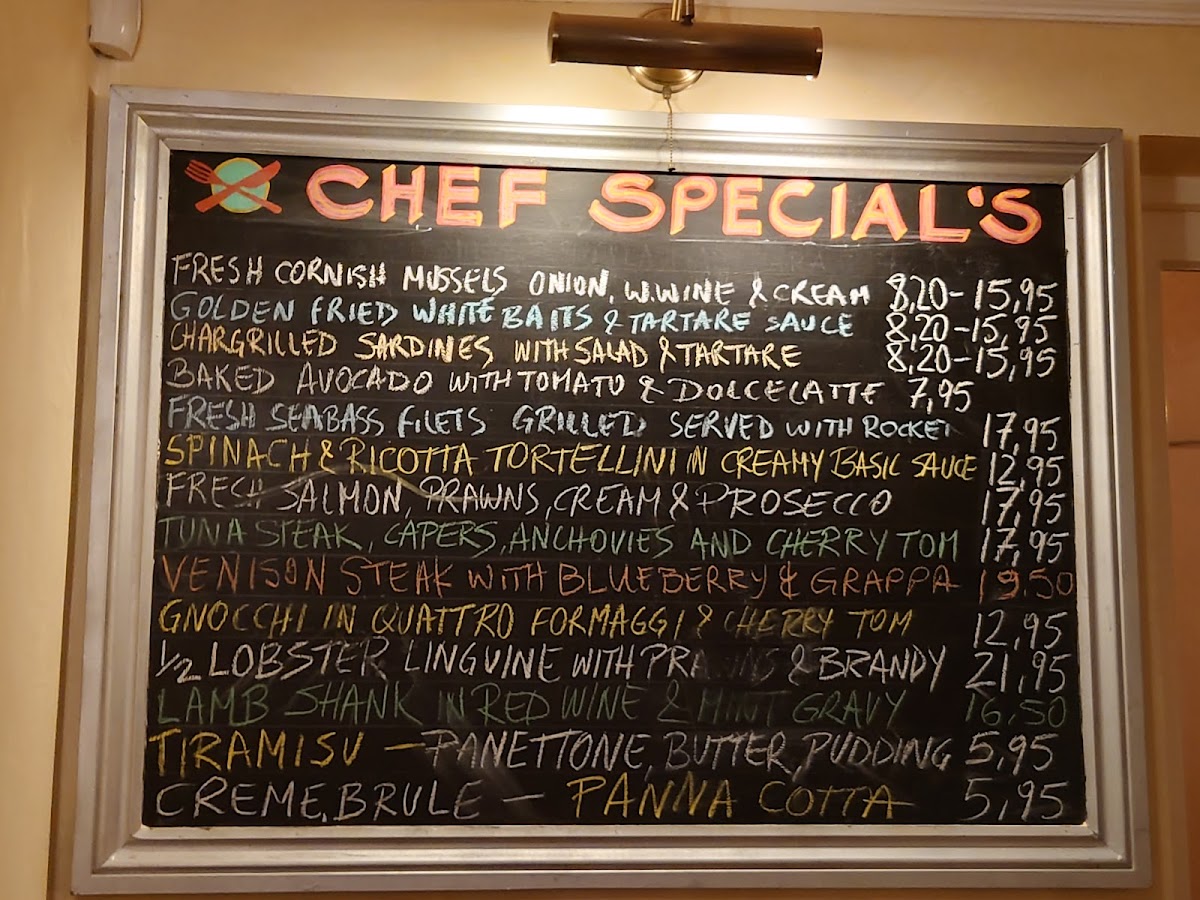 CHEF SPECIAL'S
FRESH CORNISH MUSSELS ONION, W.WINE & CREAM 8,20-15,95
GOLDEN FRIED WHITE BAITS & TARTARE SAUCE 8,20-15,95
CHARGRILLED SARDINES WITH SALAD & TARTARE 8,20-15,95
BAKED AVOCADO WITH TOMATO & DOLCELATTE 7,95
FRESH SEABASS FILETS GRILLED SERVED WITH ROCKET 17,95
SPINACH & RICOTTA TORTELLINI IN CREAMY BASIC SAUCE 12,95
FRESH SALMON, PRAWNS, CREAM & PROSECCO 17,95
TUNA STEAK, CAPERS, ANCHOVIES AND CHERRY TOM 17,95
VENISON STEAK WITH BLUEBERRY & GRAPPA 19.50
GNOCCHI IN QUATTRO FORMAGGI & CHERRY TOM 12,95
1/2 LOBSTER LINGUINE WITH PRAWNS & BRANDY 21,95
LAMB SHANK IN RED WINE & MINT GRAVY 16,50
TIRAMISU - PANETTONE, BUTTER, PUDDING 5,95
CREME, BRULE - PANNA COTTA 5,95